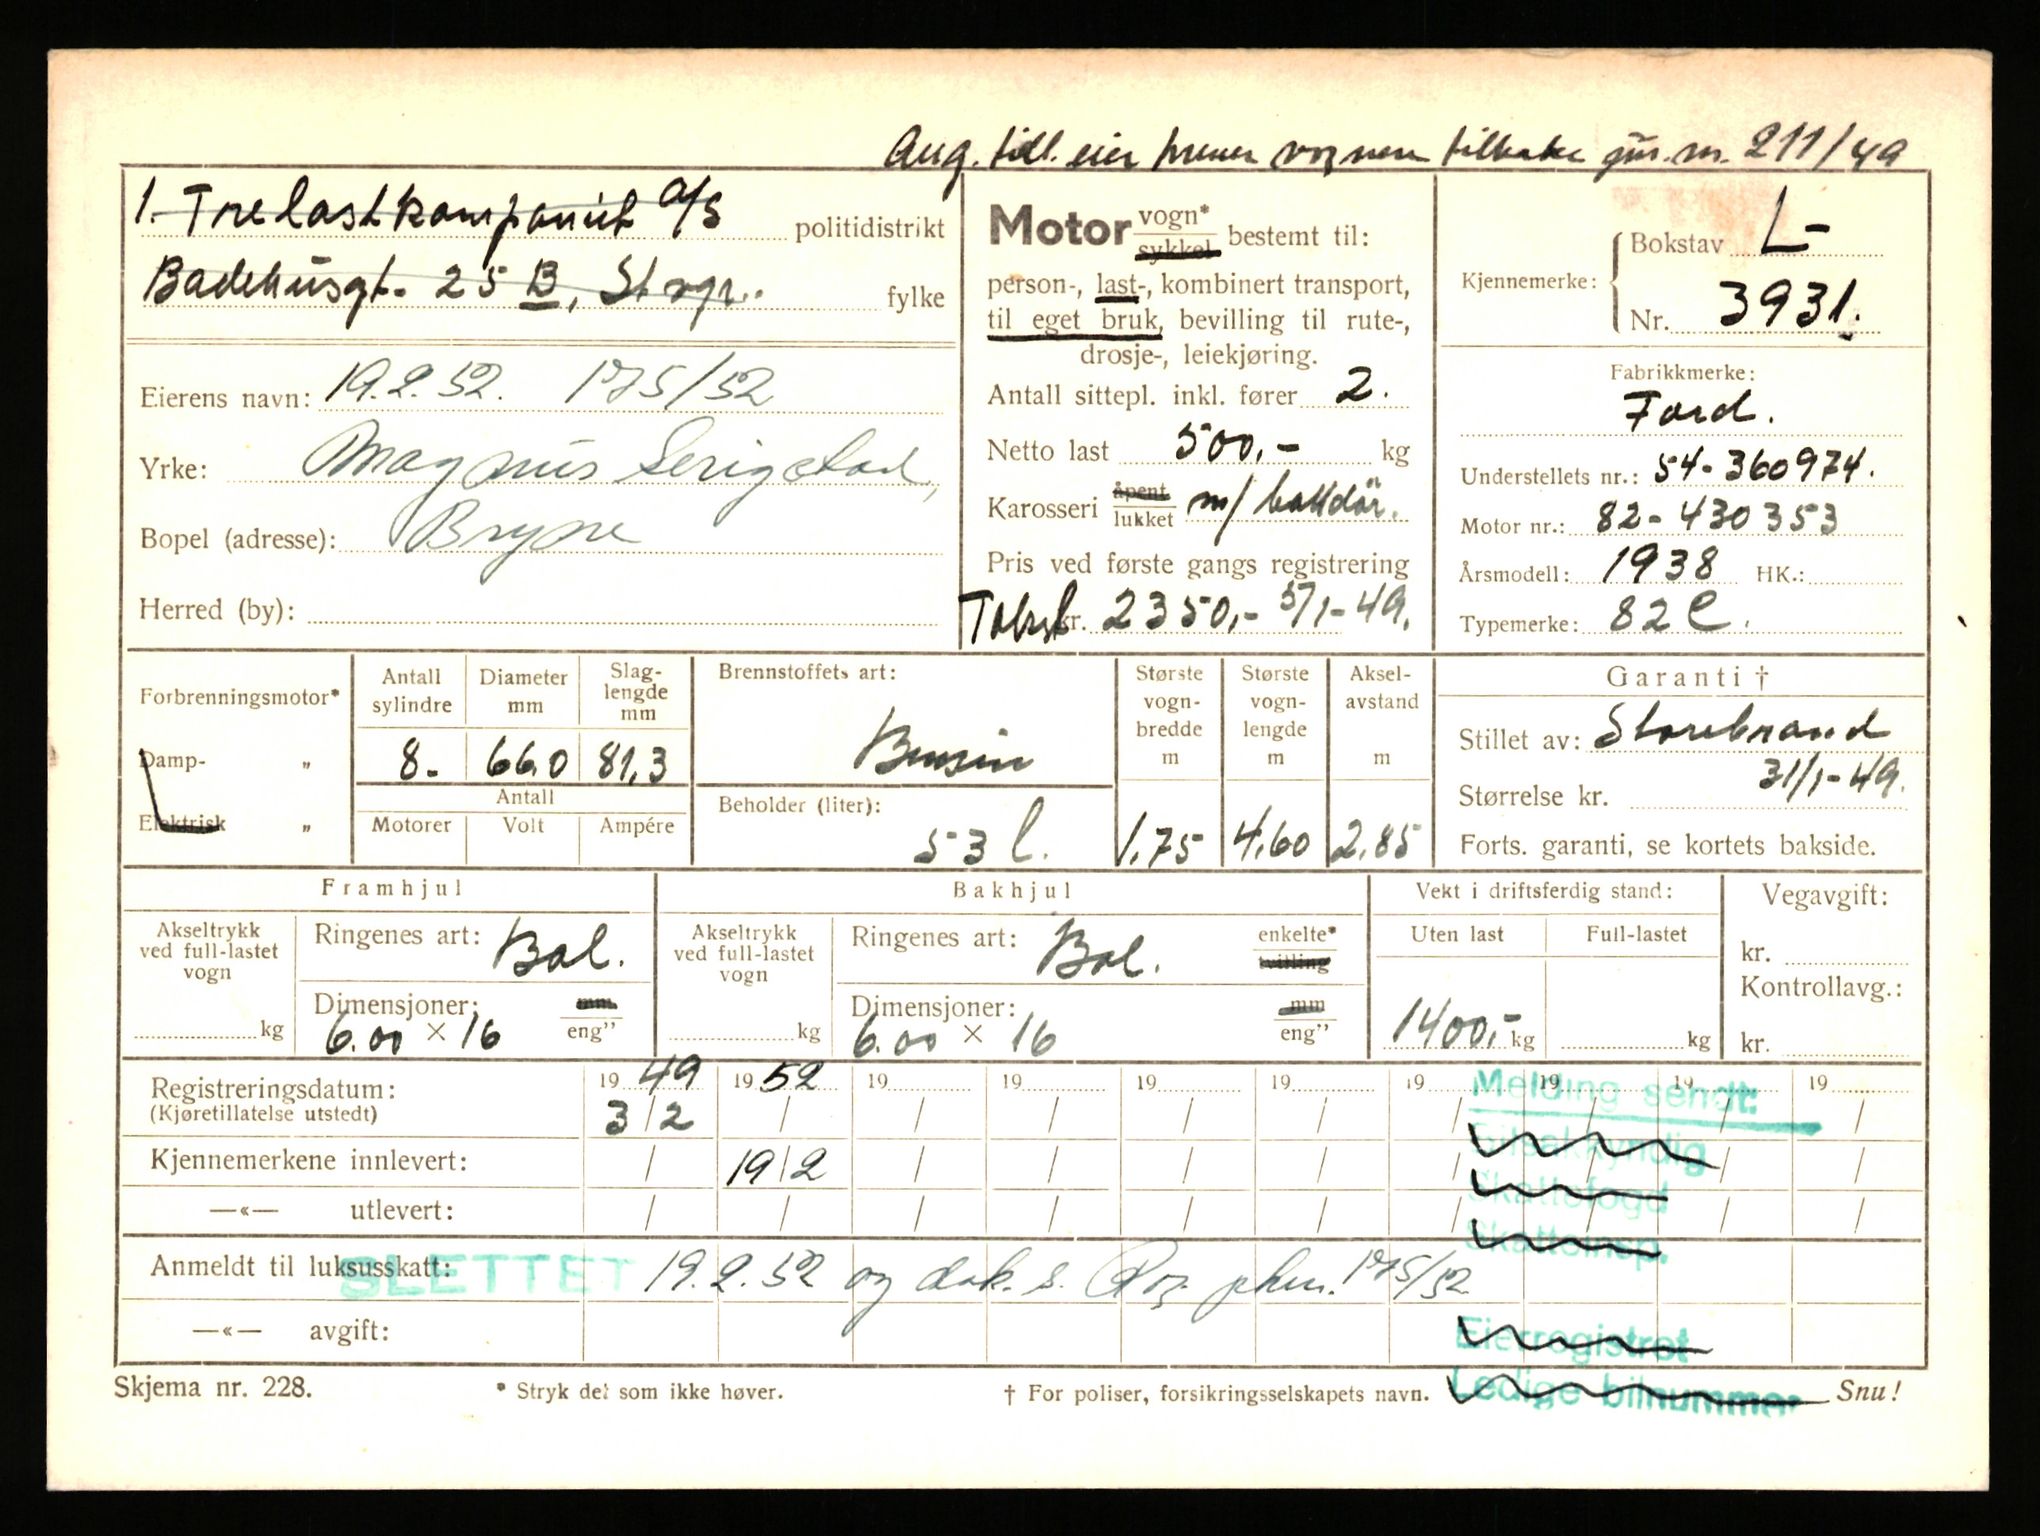 Aug. tidl. eier krever vognen tilbake jnr. nr. 211/49
1. Trelastkompaniet A/S politidistrikt
Badehusgt. 25 B, Stvgr. fylke
Eierens navn: 19.2.52. 175/52
Yrke: Magnus Serigstad,
Bopel (adresse): Bryne
Herred (by):
Motor vogn* sykkel bestemt til:
person-, last-, kombinert transport,
til eget bruk, bevilling til rute-,
drosje-, leiekjøring.
Antall sittepl. inkl. fører 2.
Netto last 500,- kg
Karosseri åpent lukket m/ bakdør.
Pris ved første gangs registrering
Takst kr. 2350,- 5/1-49.
Kjennemerke: Bokstav L-
Nr. 3931.
Fabrikkmerke:
Ford.
Understellets nr.: 54-360974.
Motor nr.: 82-430353
Årsmodell: 1938 HK.:
Typemerke: 82 C.
Forbrenningsmotor*
Damp- „
Elektrisk „
Antall sylindre Diameter mm Slaglengde mm
8. 66.0 81,3
Antall
Motorer Volt Ampére
Brennstoffets art:
Bensin
Beholder (liter):
53 l.
Største vognbredde m Største vognlengde m Akselavstand m
1,75 4,60 2,85
Garanti †
Stillet av: Storebrand
31/1-49.
Størrelse kr.
Forts. garanti, se kortets bakside.
Framhjul
Akseltrykk ved full-lastet vogn
kg
Ringenes art: Bal.
Dimensjoner: mm
6.00 × 16 eng”
Bakhjul
Akseltrykk ved full-lastet vogn
kg
Ringenes art: Bal. enkelte* tvilling
Dimensjoner: mm
6.00 × 16 eng”
Vekt i driftsferdig stand:
Uten last Full-lastet
1400,- kg kg
Vegavgift:
kr.
Kontrollavg.:
kr.
Registreringsdatum: 19 49 19 52 19 19 19 19 19 19 19 19
(Kjøretillatelse utstedt) 3/2 / / / / / / / / /
Kjennemerkene innlevert: / 19/2 / / / / / / / /
—«— utlevert: / / / / / / / / / /
Anmeldt til luksusskatt: SLETTET 19.2.52 og dok. s. Rog. phm. 175/52
—«— avgift:
Melding sendt:
Bilsakkyndig
Skattefogd
Skatteinsp.
Eierregistret
Ledige bilnummer
Skjema nr. 228. * Stryk det som ikke høver. † For poliser, forsikringsselskapets navn. Snu!